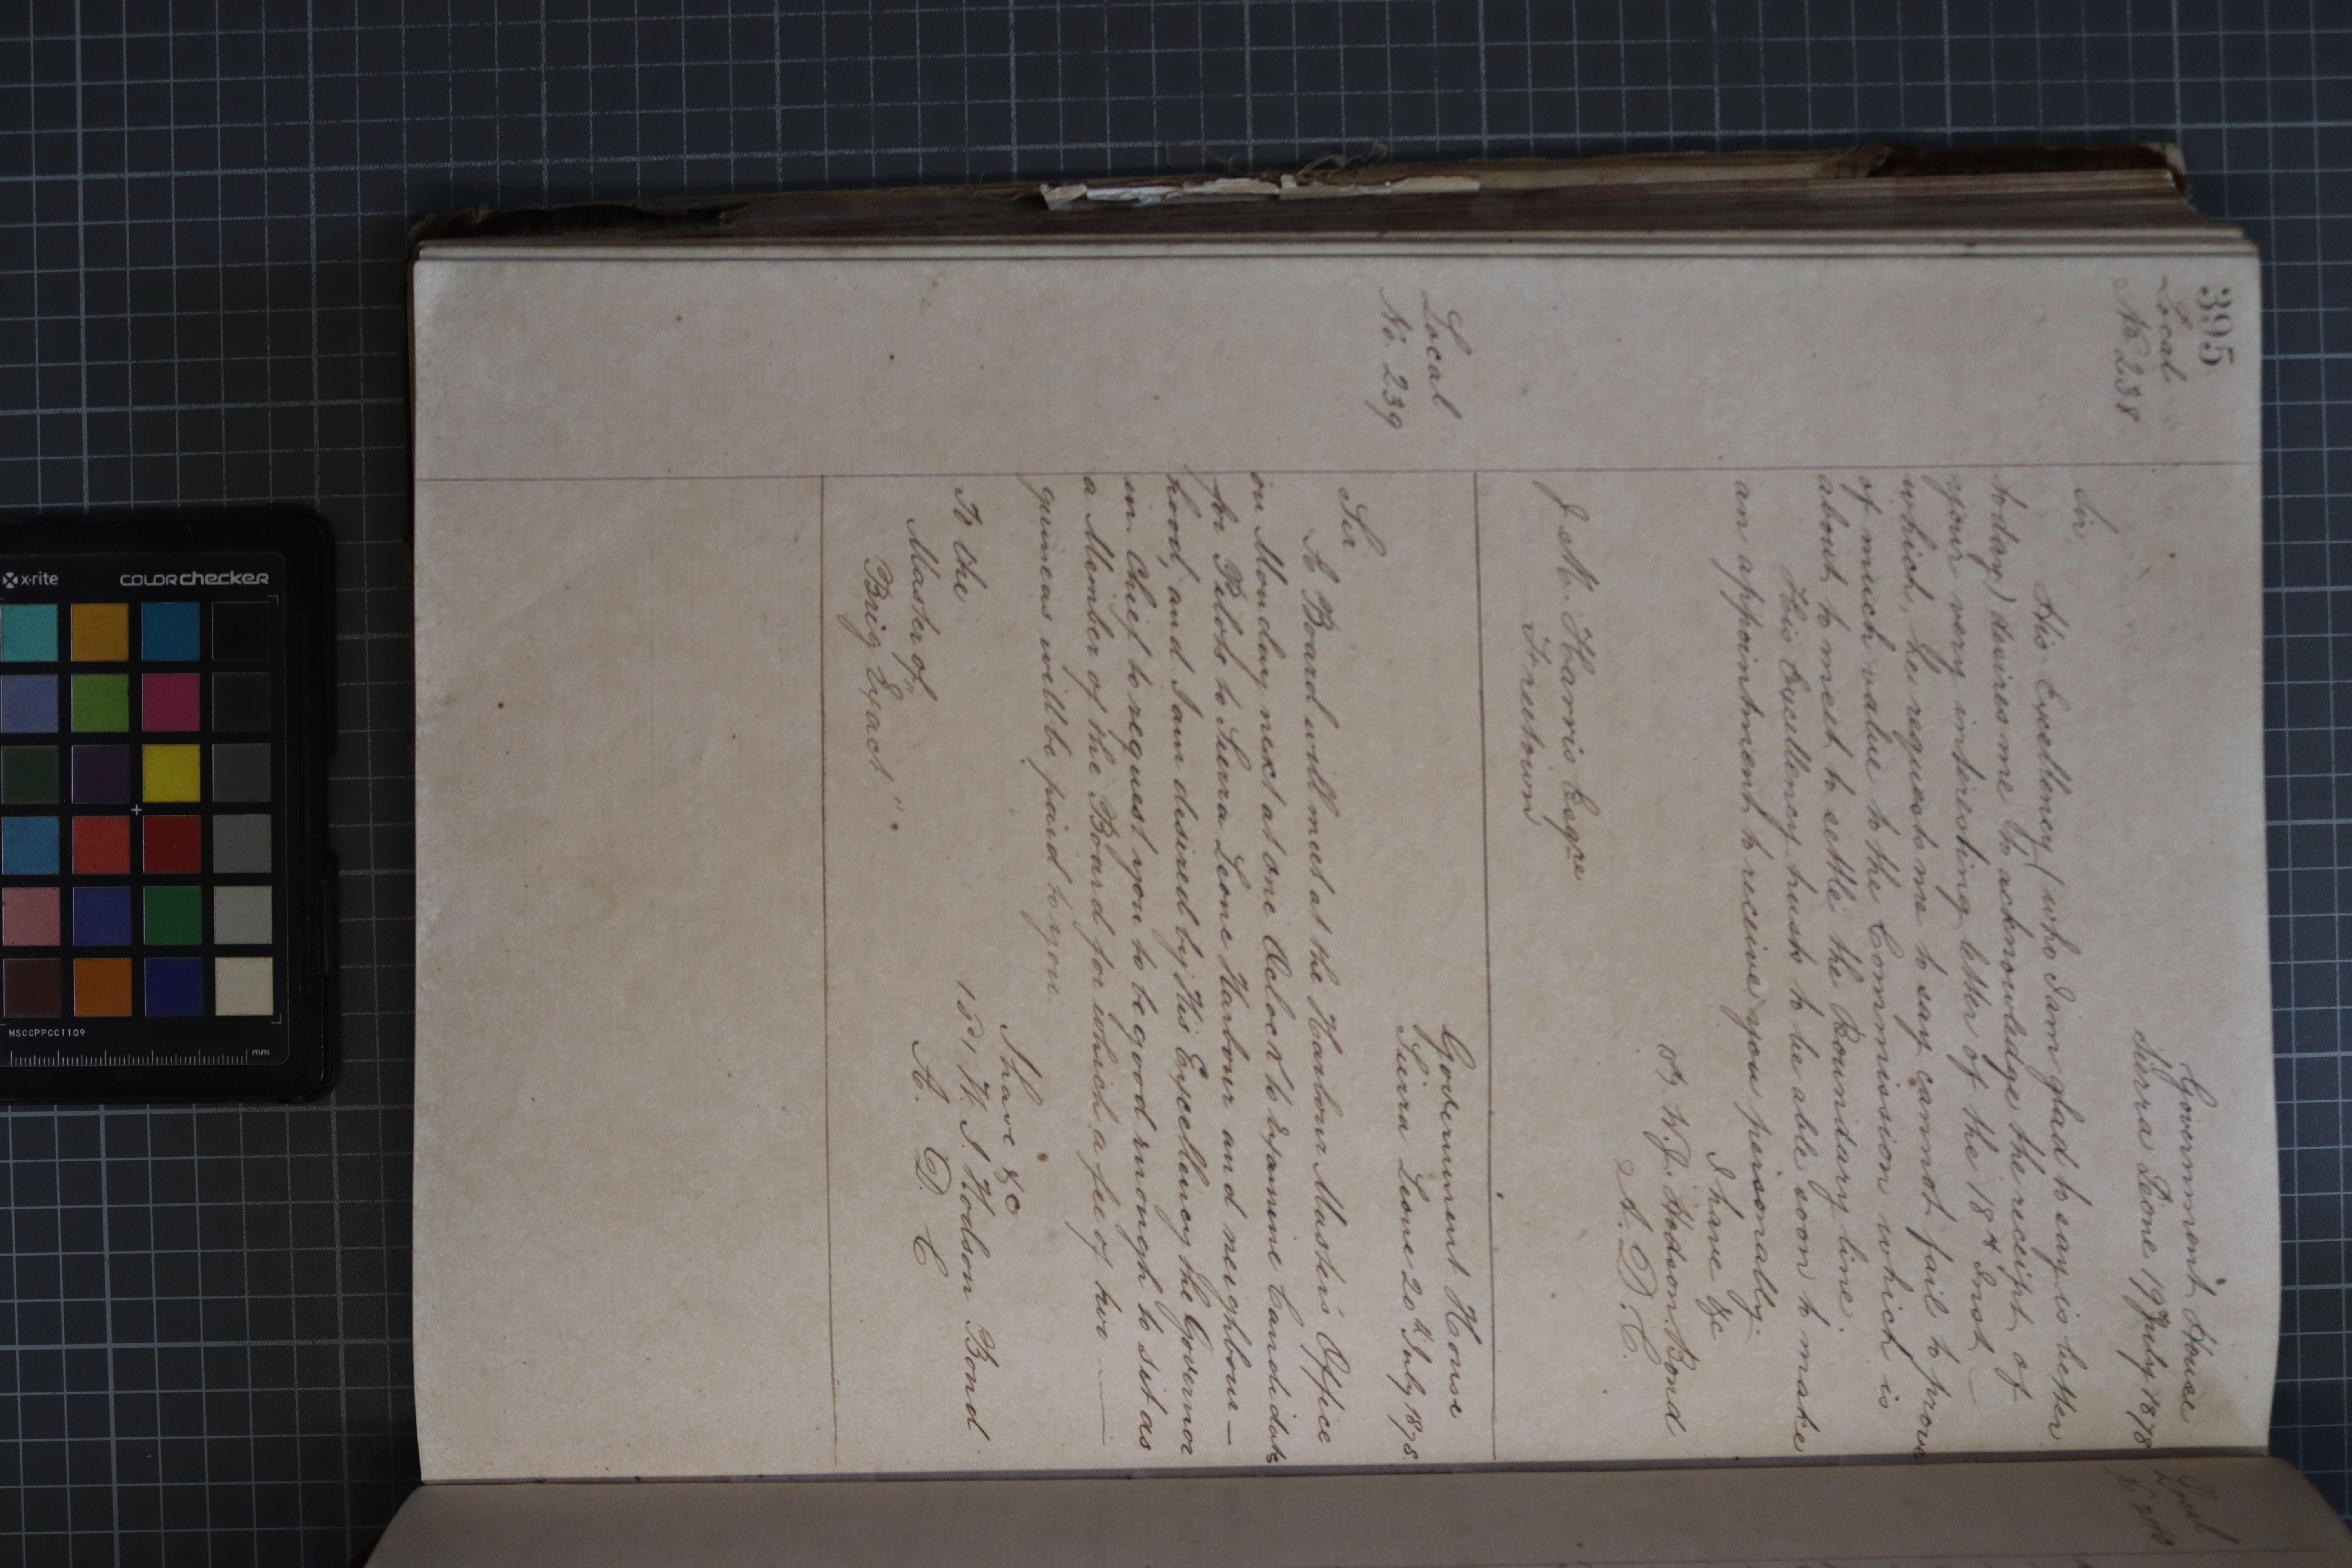 395
Local
No 238
Government House
Sierra Leone 19 July 1878
Sir,
His Excellency (who I am glad to say is better
today) desires me to acknowledge the receipt of
your very interesting letter of the 18th Inst
which, he requests me to say cannot fail to prove
of much value to the Commission which is
about to meet to settle the Boundary line.
His Excellency trusts to be able soon to make
an appointment to receive you personally.
I have &c
W. J. Hodson Bond
A. D. C.
J M. Harris Esqre
Freetown
Local
No. 239
Government House
Sierra Leone 20th July 1878.
Sir
A Board will meet at the Harbour Master's Office
on Monday next at one Oclock to Examine Candidates
for Pilots to Sierra Leone Harbour and neighbour-
hood, and I am desired by His Excellency the Governor
in Chief to request you to be good enough to sit as
a Member of the Board for which a fee of two
guineas will be paid to you.
I have &c
W. J. Hodson Bond
A. D. C
To the
Master of
Brig "Exact"
Local
x-rite
colorchecker
MSCCPPCC1109
mm